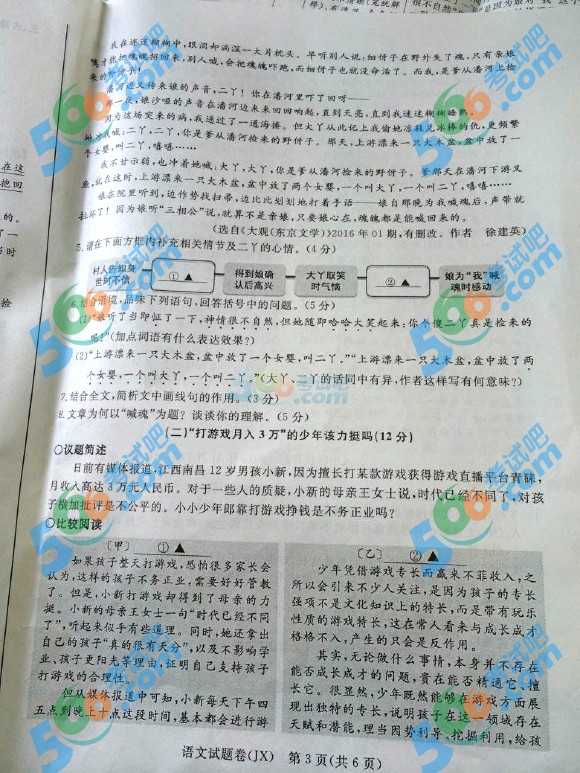 我在迷迷糊糊中，眼泪却滴湿一大片枕头。早听别人说：细伢子在野外失了魂，只有亲娘
喊才能把魂魄招回来，别人喊，会把魂魄吓跑，而细伢子也就没命活了。而我，是爹从潘河上捡
来的野伢子！
潘河边又传来娘的声音，二丫！你在潘河里吓了回呀——
那一夜，娘沙哑的声音在潘河边来来回回响起，直到天亮，直到我迷迷糊糊睡熟。
因为这场突来的病，我逃过了一通海揍。但大丫从此记上我偷她凉鞋兑冰棒的仇，更频繁
地冲我喊：二丫，二丫，你是爹从潘河捡来的野伢子。那天，上游漂来一只大木盆，盆中放了一
个女婴，叫二丫，嘻嘻……
我不甘示弱，也冲着她喊：大丫，大丫，你是爹从潘河捡来的野伢子。爹那天在潘河下游叉
鱼，就在这时，上游漂来一只大木盆，盆中放了两个女婴，一个叫大丫，一个叫二丫，嘻嘻……
娘在院里听到，边作势找扫帚，边比比划划地打着手语——娘自那晚为我喊魂后，声带就
拉坏了！因为娘听“三相公”说，就算不是亲娘，只要娘心在，魂魄都是能喊回来的。
（选自《大观（东京文学）》2016年01期，有删改。作者 徐建英）
5.请在下面方框内补充相关情节及二丫的心情。（4分）
村人告知身世时不信
①▲
得到娘确认后高兴
大丫取笑时气愤
②▲
娘为“我”喊魂时感动
6.结合语境，品味下列语句，回答括号中的问题。（5分）
（1）“娘听了当即怔了一下，神情很不自然，但她随即哈哈大笑起来：你个傻二丫真是捡来的
呢！”（加点词语有什么表达效果？）
（2）“上游漂来一只大木盆，盆中放了一个女婴，叫二丫。”“上游漂来一只大木盆，盆中放了两
个女婴，一个叫大丫，一个叫二丫。”（大丫、二丫的话同中有异，作者这样写有何意味？）
7.结合全文，简析文中画线句的作用。（3分）
8.文章为何以“喊魂”为题？谈谈你的理解。（5分）
（二）“打游戏月入3万”的少年该力挺吗（12分）
○议题简述
日前有媒体报道，江西南昌12岁男孩小新，因为擅长打某款游戏获得游戏直播平台青睐，
月收入高达3万元人民币。对于一些人的质疑，小新的母亲王女士说，时代已经不同了，对孩
子横加批评是不公平的。小小少年郎靠打游戏挣钱是不务正业吗？
○比较阅读
〔甲〕 ①▲
如果孩子整天打游戏，恐怕很多家长会
认为，这样的孩子不务正业，需要好好管教
了。但是，小新打游戏却得到了母亲的力
挺。小新的母亲王女士一句“时代已经不同
了”，听起来似乎有些道理。同时，她还拿出
自己的孩子“真的很有天分”，以及不影响学
业、孩子更阳光等理由，证明自己支持孩子
打游戏的合理性。
但从媒体报道中可知，小新每天下午四
五点到晚上十点这段时间，基本都会进行游
〔乙〕 ②▲
少年凭借游戏专长而赢来不菲收入，之
所以会引来不少人关注，是因为孩子的专长
强项不是文化知识上的特长，而是带有玩乐
性质的游戏特长，这在常人看来与成长成才
格格不入，产生的只会是反作用。
其实，无论做什么事情，本身并不存在
能否成长成才的问题，贵在能否精通它、擅
长它。很显然，少年既然能够在游戏方面展
现出独特的专长，说明孩子在这一领域存在
天赋和潜能，理当因势利导、挖掘利用，给孩
语文试题卷（JX） 第3页（共6页）
566考试吧